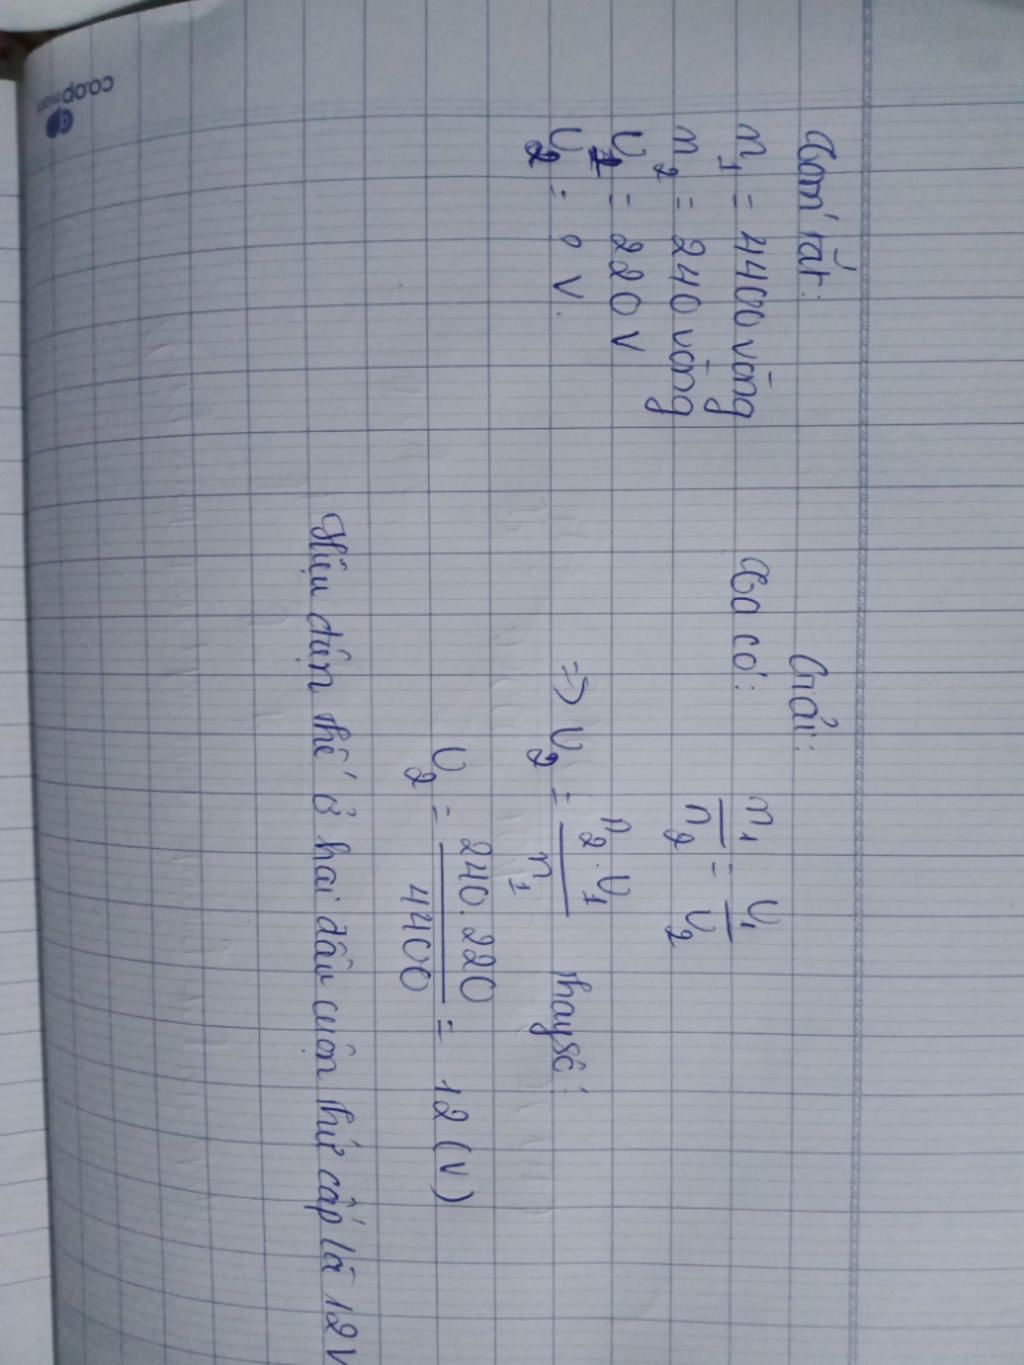 Tóm tắt:
n₁ = 4400 vòng
n₂ = 240 vòng
U₁ = 220 V
U₂ = ? V.
Giải:
Ta có: n₁/n₂ = U₁/U₂
=> U₂ = n₂.U₁/n₁ thay số:
U₂ = 240.220/4400 = 12 (V)
Hiệu điện thế ở hai đầu cuộn thứ cấp là 12V
co.opmart